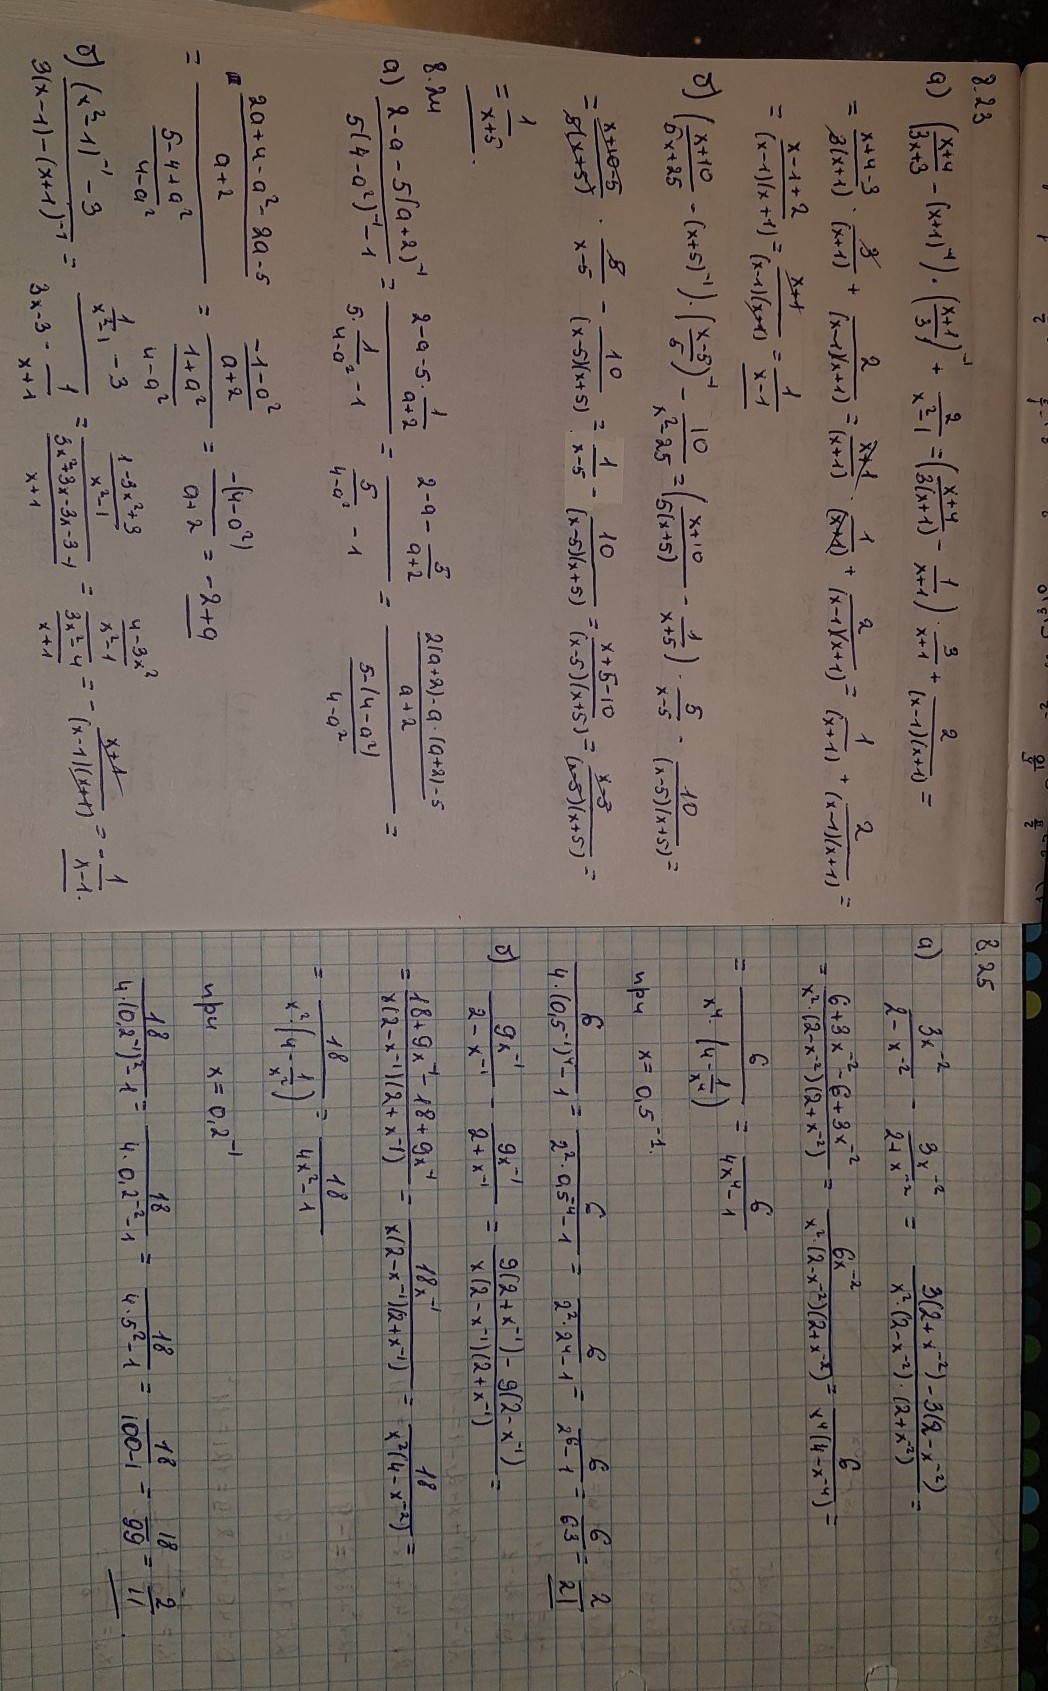 8.23
а) ((x+4)/(3x+3) - (x+1)⁻¹) · ((x+1)/3)⁻¹ + 2/(x²-1) = ((x+4)/(3(x+1)) - 1/(x+1)) · 3/(x+1) + 2/((x-1)(x+1)) =
= (x+4-3)/(3(x+1)) · 3/(x+1) + 2/((x-1)(x+1)) = (x+1)/(x+1) · 1/(x+1) + 2/((x-1)(x+1)) = 1/(x+1) + 2/((x-1)(x+1)) =
= (x-1+2)/((x-1)(x+1)) = (x+1)/((x-1)(x+1)) = 1/(x-1)
б) ((x+10)/(5x+25) - (x+5)⁻¹) · ((x-5)/5)⁻¹ - 10/(x²-25) = ((x+10)/(5(x+5)) - 1/(x+5)) · 5/(x-5) - 10/((x-5)(x+5)) =
= (x+10-5)/(5(x+5)) · 5/(x-5) - 10/((x-5)(x+5)) = 1/(x-5) - 10/((x-5)(x+5)) = (x+5-10)/((x-5)(x+5)) = (x-5)/((x-5)(x+5)) =
= 1/(x+5).
8.24
а) (2-a-5(a+2)⁻¹)/(5(4-a²)⁻¹-1) = (2-a-5·1/(a+2))/(5·1/(4-a²)-1) = (2-a-5/(a+2))/(5/(4-a²)-1) = ((2(a+2)-a·(a+2)-5)/(a+2))/((5-(4-a²))/(4-a²)) =
= ((2a+4-a²-2a-5)/(a+2))/((5-4+a²)/(4-a²)) = ((-1-a²)/(a+2))/((1+a²)/(4-a²)) = (-(4-a²))/(a+2) = -2+a
б) ((x²-1)⁻¹-3)/(3(x-1)-(x+1)⁻¹) = (1/(x²-1)-3)/(3x-3-1/(x+1)) = ((1-3x²+3)/(x²-1))/((3x²+3x-3x-3-1)/(x+1)) = ((4-3x²)/(x²-1))/((3x²-4)/(x+1)) = -(x+1)/((x-1)(x+1)) = -1/(x-1).
8.25
а) 3x⁻²/(2-x⁻²) - 3x⁻²/(2+x⁻²) = (3(2+x⁻²)-3(2-x⁻²))/(x²·(2-x⁻²)·(2+x⁻²)) =
= (6+3x⁻²-6+3x⁻²)/(x²(2-x⁻²)(2+x⁻²)) = 6x⁻²/(x²·(2-x⁻²)(2+x⁻²)) = 6/(x⁴(4-x⁻⁴)) =
= 6/(x⁴·(4-1/x⁴)) = 6/(4x⁴-1)
при x=0,5⁻¹.
6/(4·(0,5⁻¹)⁴-1) = 6/(2²·0,5⁻⁴-1) = 6/(2²·2⁴-1) = 6/(2⁶-1) = 6/63 = 2/21
б) 9x⁻¹/(2-x⁻¹) - 9x⁻¹/(2+x⁻¹) = (9(2+x⁻¹)-9(2-x⁻¹))/(x(2-x⁻¹)(2+x⁻¹)) =
= (18+9x⁻¹-18+9x⁻¹)/(x(2-x⁻¹)(2+x⁻¹)) = 18x⁻¹/(x(2-x⁻¹)(2+x⁻¹)) = 18/(x²(4-x⁻²)) =
= 18/(x²·(4-1/x²)) = 18/(4x²-1)
при x=0,2⁻¹
18/(4·(0,2⁻¹)²-1) = 18/(4·0,2⁻²-1) = 18/(4·5²-1) = 18/(100-1) = 18/99 = 2/11.